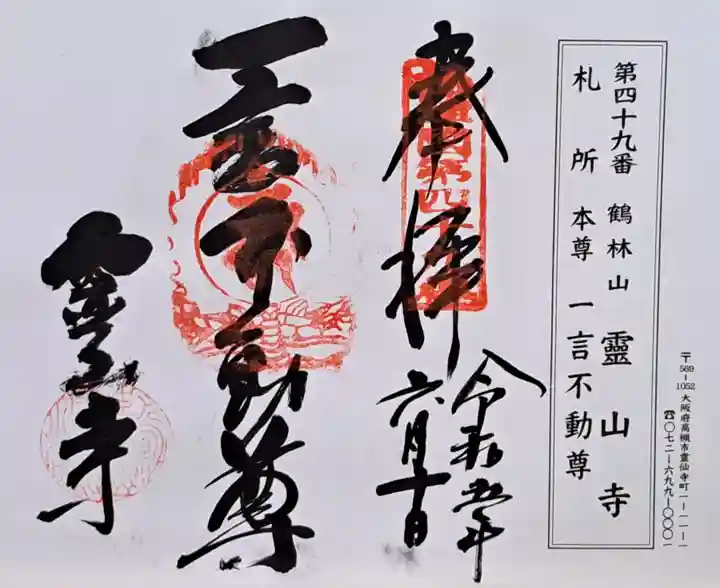 〒569-1052 大阪府高槻市霊仙寺町一-一一-一
☎〇七二-六九九-〇〇〇一
第四十九番 鶴林山 靈山寺
札所 本尊 一言不動尊
奉拝
令和五年
六月十日
一言不動尊
靈山寺